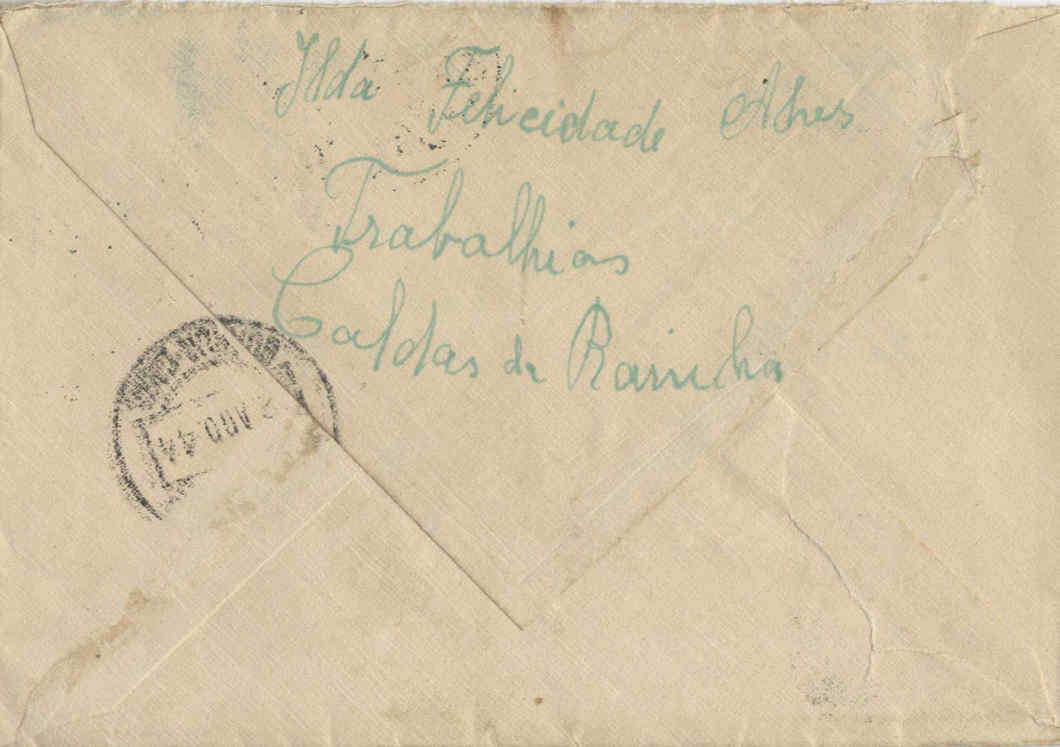 Ilda Felicidade Alves
Trabalhias
Caldas da Rainha
AGO 44